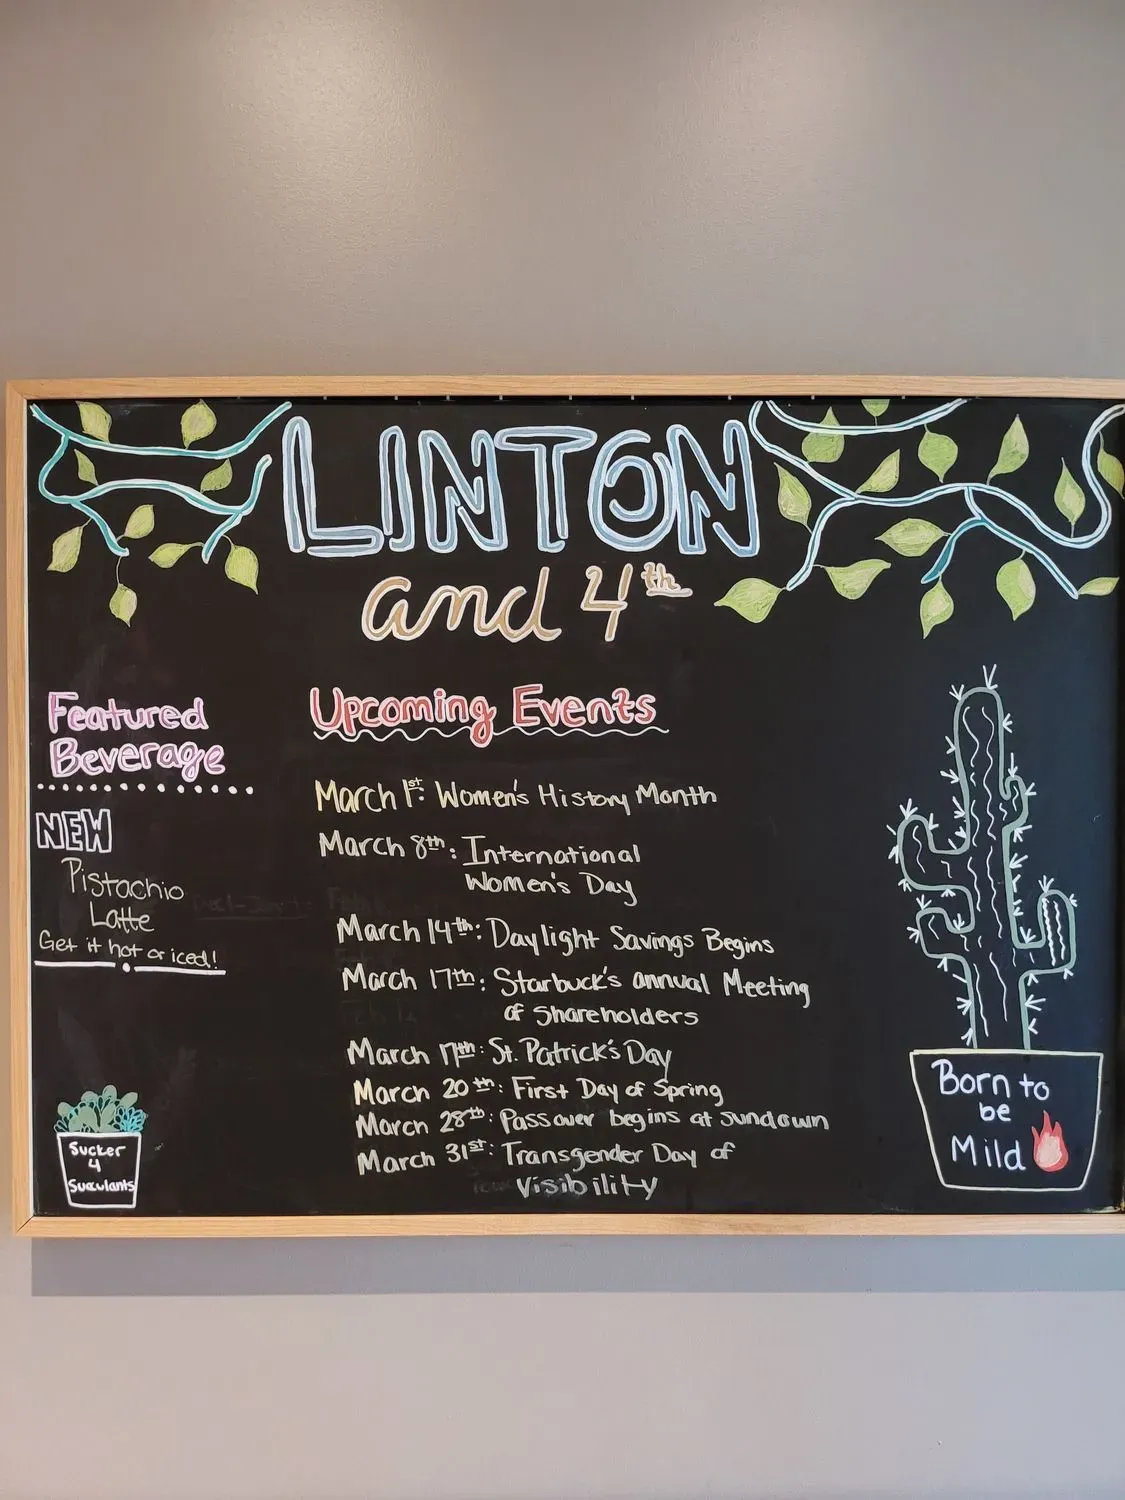 LINTON
and 4th
Featured
Beverage
NEW
Pistachio
Latte
Get it hot or iced!
Sucker
4
Succulants
Upcoming Events
March 1st: Women's History Month
March 8th: International
Women's Day
March 14th: Daylight Savings Begins
March 17th: Starbuck's annual Meeting
of Shareholders
March 17th: St. Patrick's Day
March 20th: First Day of Spring
March 28th: Passover begins at sundown
March 31st: Transgender Day of
Visibility
Born to
be
Mild